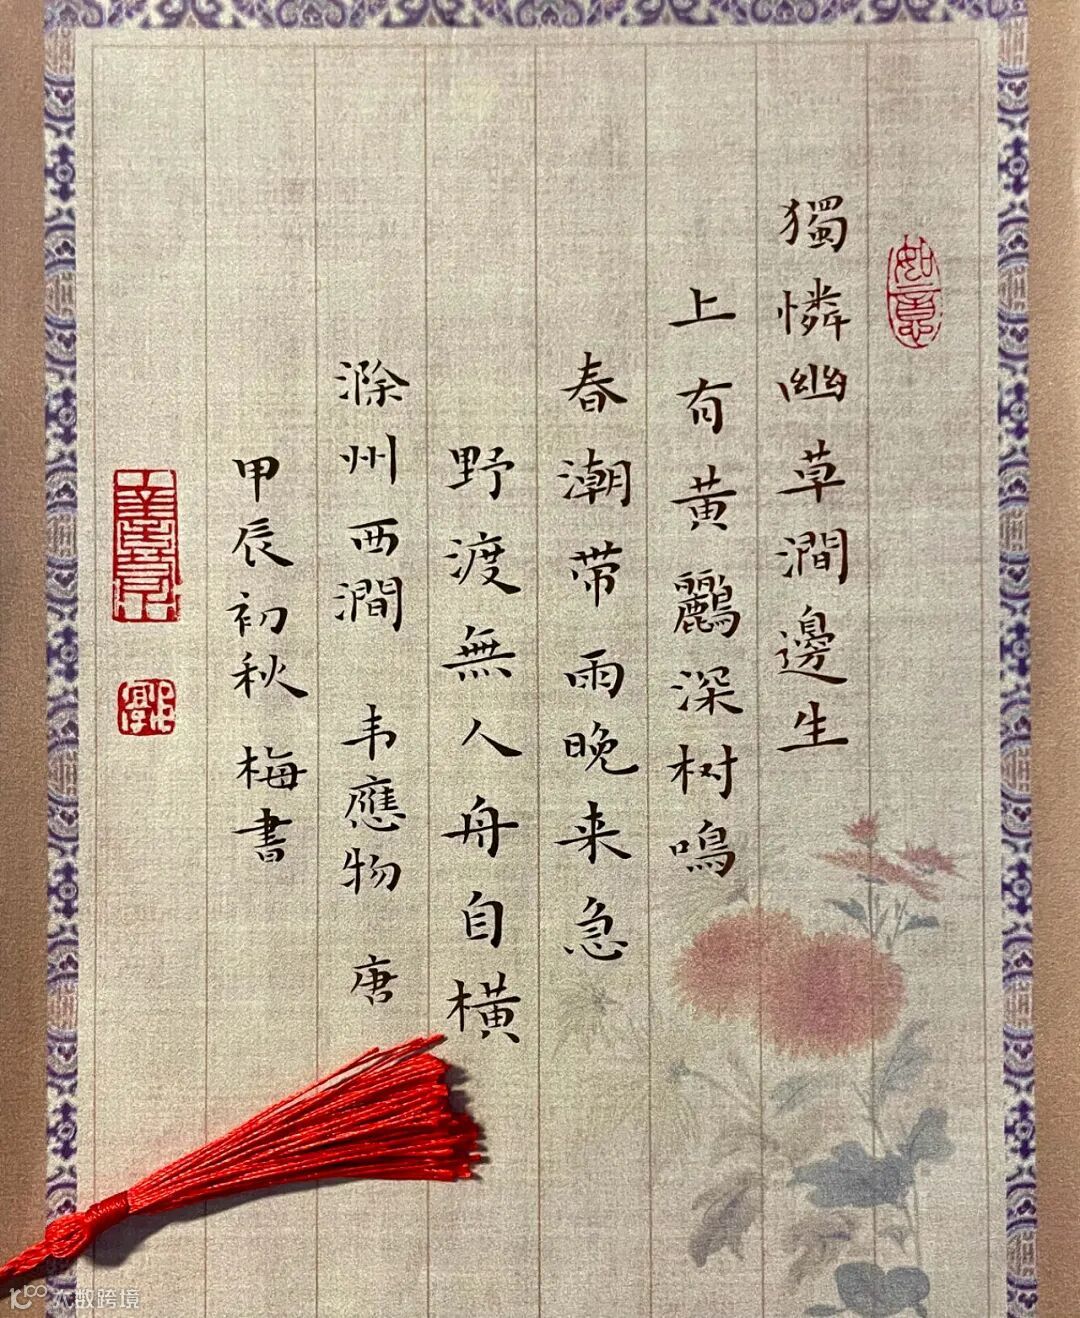 如意
獨憐幽草澗邊生
上有黄鸝深树鳴
春潮带雨晚来急
野渡無人舟自横
滁州西澗 韦應物 唐
甲辰初秋 梅書
郭
大数跨境